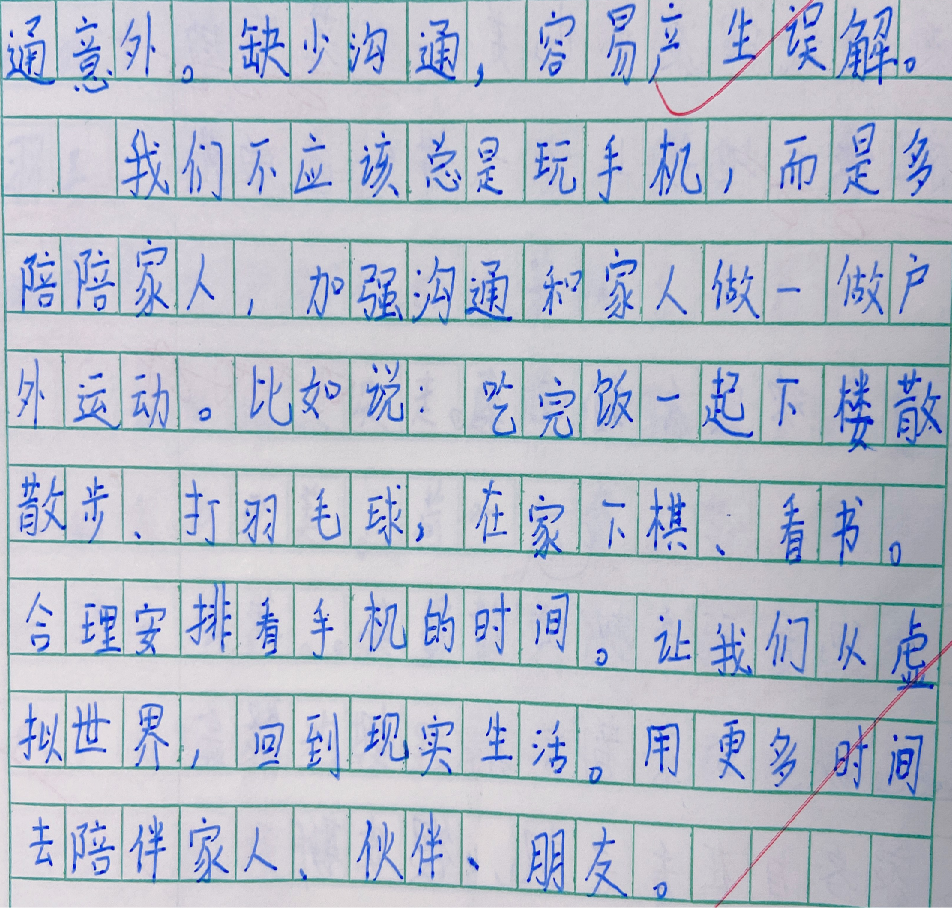 通意外。缺少沟通，容易产生误解。
我们不应该总是玩手机，而是多
陪陪家人，加强沟通和家人做一做户
外运动。比如说：吃完饭一起下楼散
散步、打羽毛球，在家下棋、看书。
合理安排看手机的时间。让我们从虚
拟世界，回到现实生活。用更多时间
去陪伴家人、伙伴、朋友。